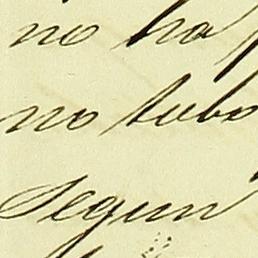 no ha
no tubo
Segun